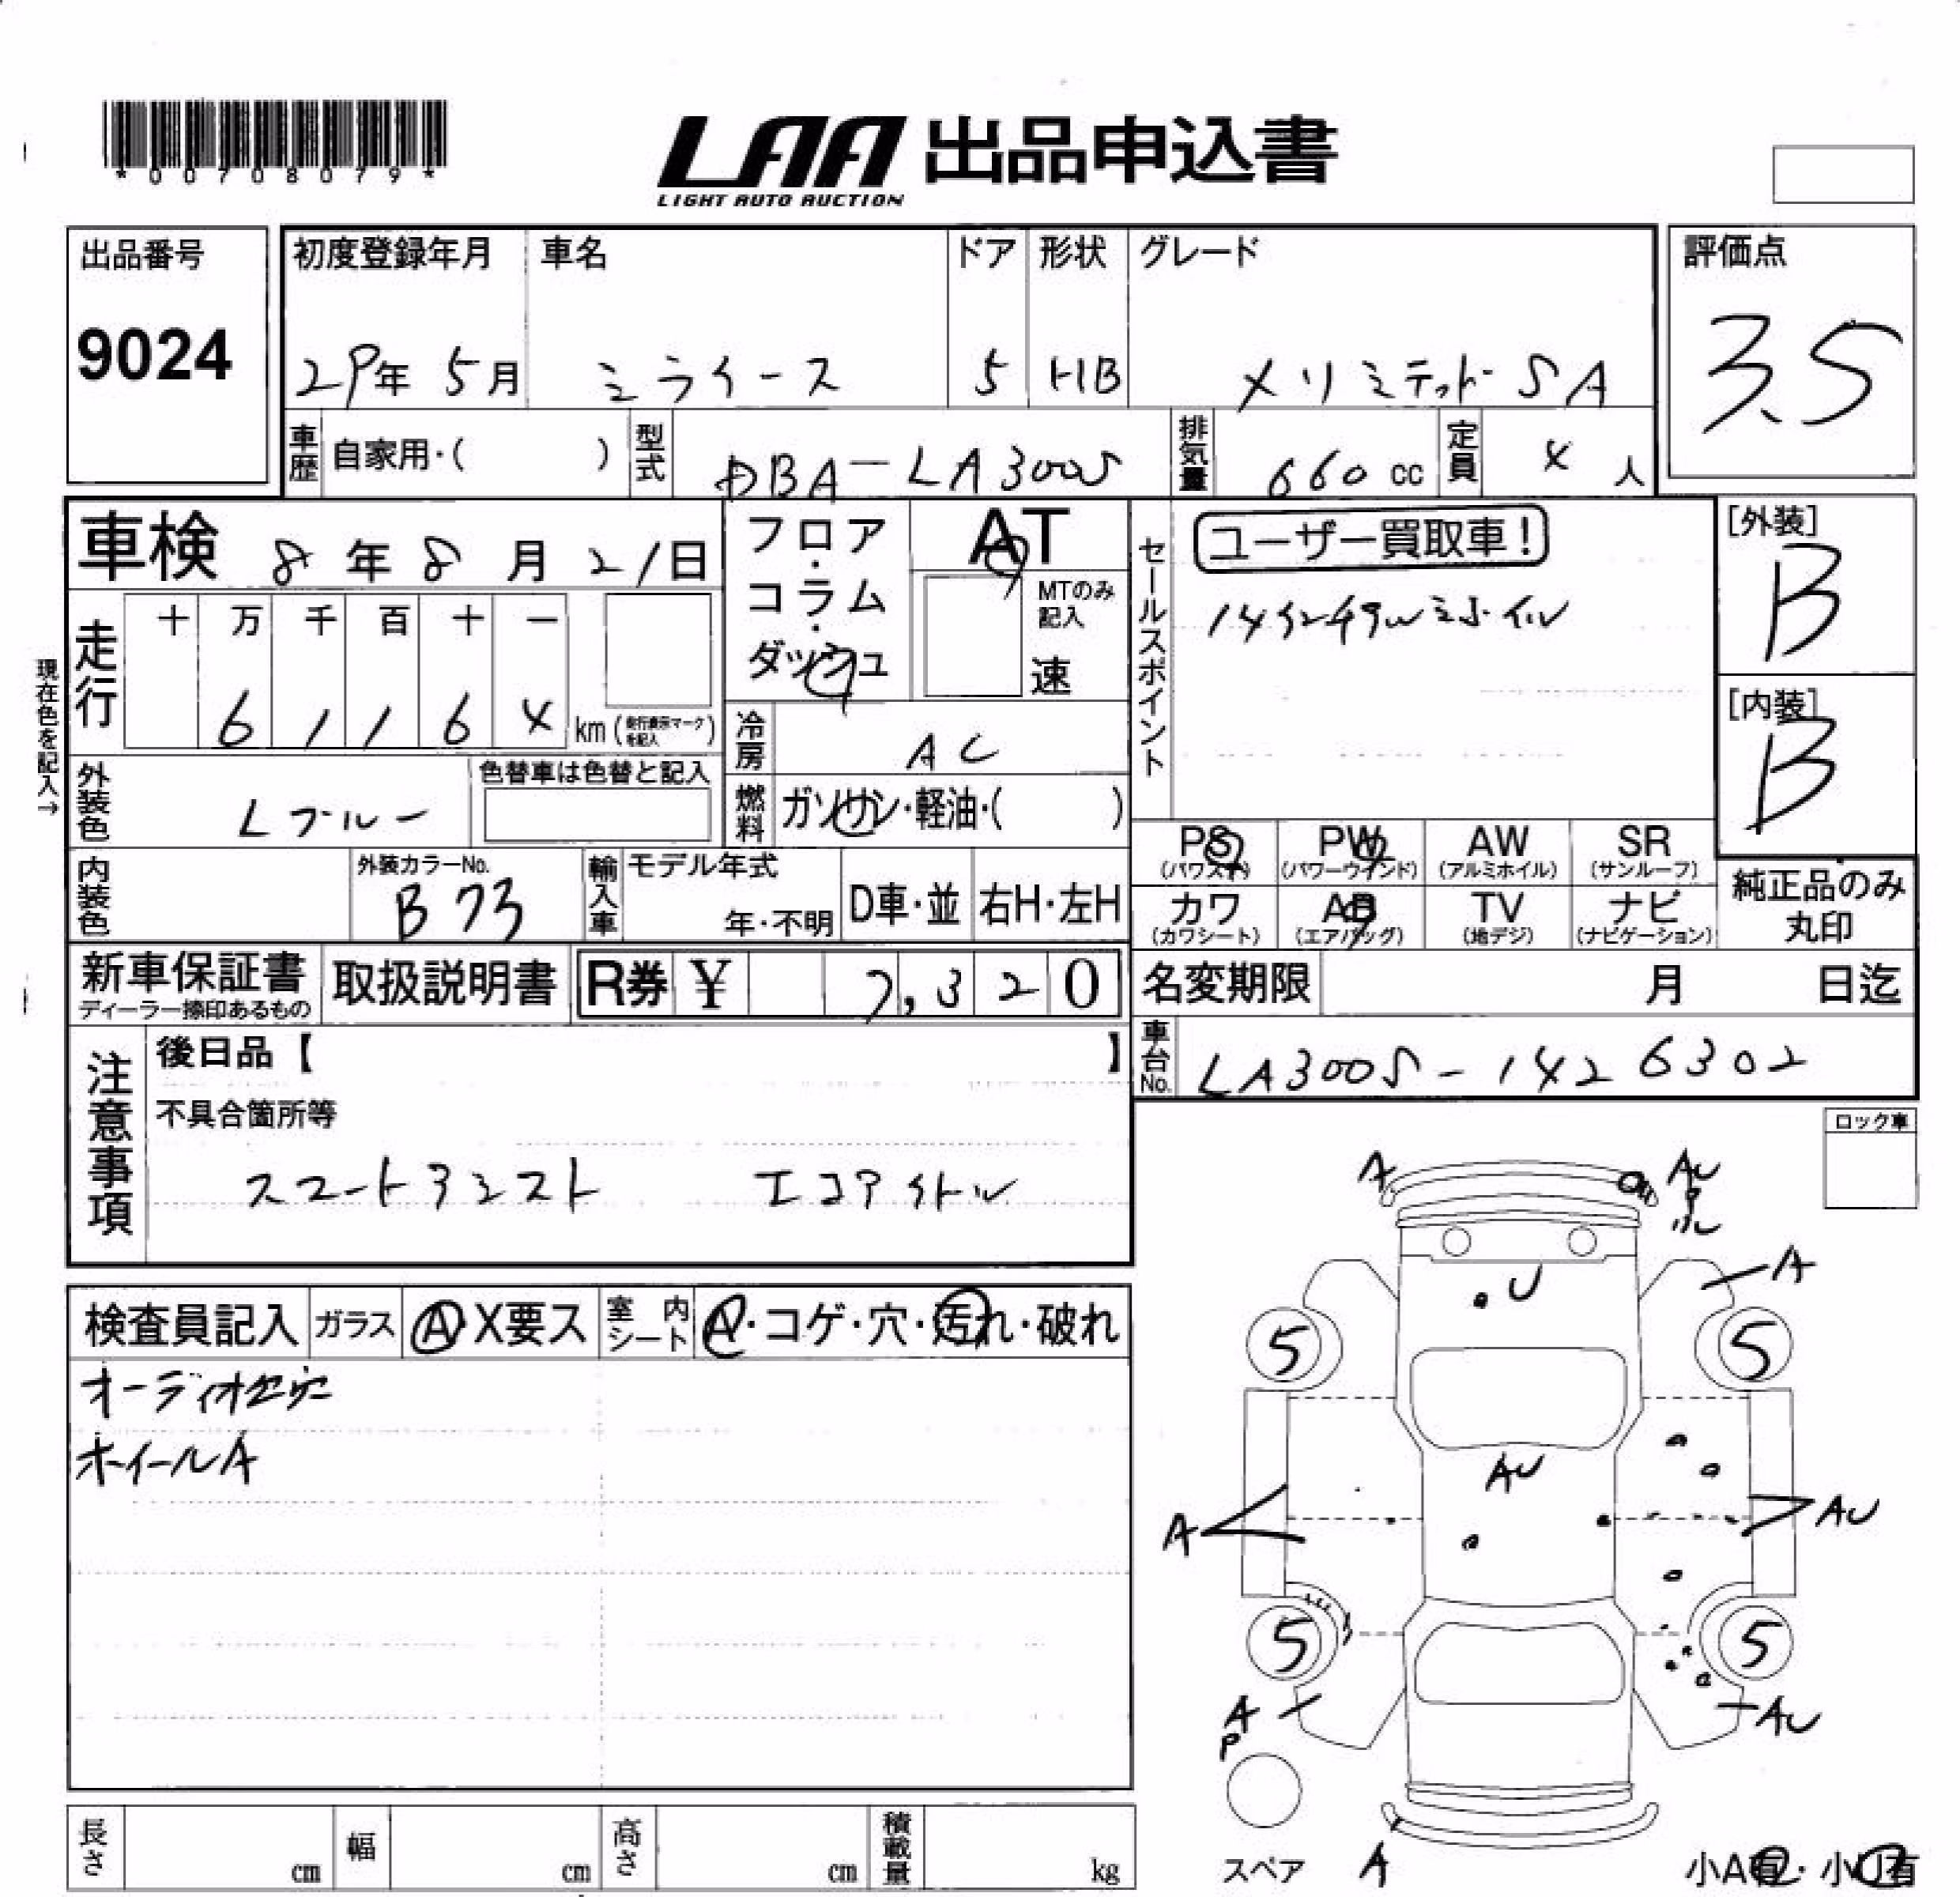 *00708079*
LAA 出品申込書
LIGHT AUTO AUCTION
出品番号
9024
初度登録年月 車名 ドア 形状 グレード
29年 5月 ミライース 5 HB メリミテッド SA
評価点
3.5
車歴 自家用・( ) 型式 DBA-LA300S 排気量 660 cc 定員 4 人
車検 8年 8月 21日
フロア・コラム・ダッシュ
AT
MTのみ記入
速
セールスポイント
ユーザー買取車!
[外装]
B
[内装]
B
現在色を記入→
走行 十 万 千 百 十 一
6 1 1 6 4 km (走行表示マークを記入)
冷房 AC
外装色 Lブルー
色替車は色替と記入
燃料 ガソリン・軽油・( )
内装色
外装カラーNo.
B73
輸入車 モデル年式
年・不明
D車・並 右H・左H
PS AW PW SR
(パワステ) (パワーウインド) (アルミホイル) (サンルーフ)
カワ AB TV ナビ
(カワシート) (エアバッグ) (地デジ) (ナビゲーション)
純正品のみ
丸印
新車保証書
ディーラー捺印あるもの
取扱説明書
R券 ¥ 7,320
名変期限 月 日迄
車台No. LA300S-1426302
注意事項
後日品【 】
不具合箇所等
スマートアシスト エコアイドル
ロック車
検査員記入 ガラス A・X要ス 室内シート A・コゲ・穴・汚れ・破れ
ホイールA
A AU
U A
5 5
AU
A AU
5 5
A AU
P
スペア A 小A有・小U有
長さ cm 幅 cm 高さ cm 積載量 kg